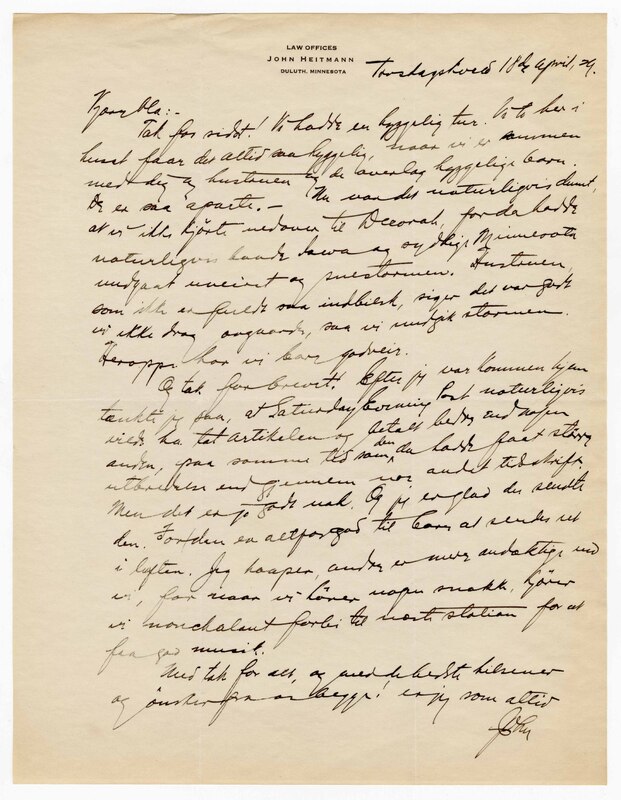 LAW OFFICES
JOHN HEITMANN
DULUTH, MINNESOTA
Torsdagskveld 18de April, 29.
Kjære Ola:-
Tak for sidst! Vi hadde en hyggelig tur. Vi to her i
huset faar det altid saa hyggelig, naar vi er sammen
med dig og hustruen og de overlag hyggelige barn.
De er saa "aparte". - Nu var det naturligvis dumt,
at vi ikke kjørte nedover til Decorah, for da hadde
naturligvis baade Iowa og sydlige Minnesota
undgaat uveiret og snestormen. Hustruen,
som ikke er fuldt saa indbilsk, siger det var godt
vi ikke drog avgaarde, saa vi undgik stormen.
Heroppe har vi bare godveir.
Og tak for brevet! Efter jeg var kommen hjem
tænkte jeg paa, at Saturday Evening Post naturligvis
vilde ha tat artikelen og betalt bedre end nogen
anden, paa samme tid som den da hadde faat større
utbredelse end gjennem noe andet tidsskrift.
Men det er jo godt nok. Og jeg er glad du sendte
den. For den er altfor god til bare at sendes ut
i luften. Jeg haaper, andre er mere andægtige end
vi, for naar vi hører nogen snakke, kjører
vi nonchalant forbi til næste station for at
faa god musik.
Med tak for alt, og med de bedste hilsener
og ønsker fra os begge! er jeg som altid
John